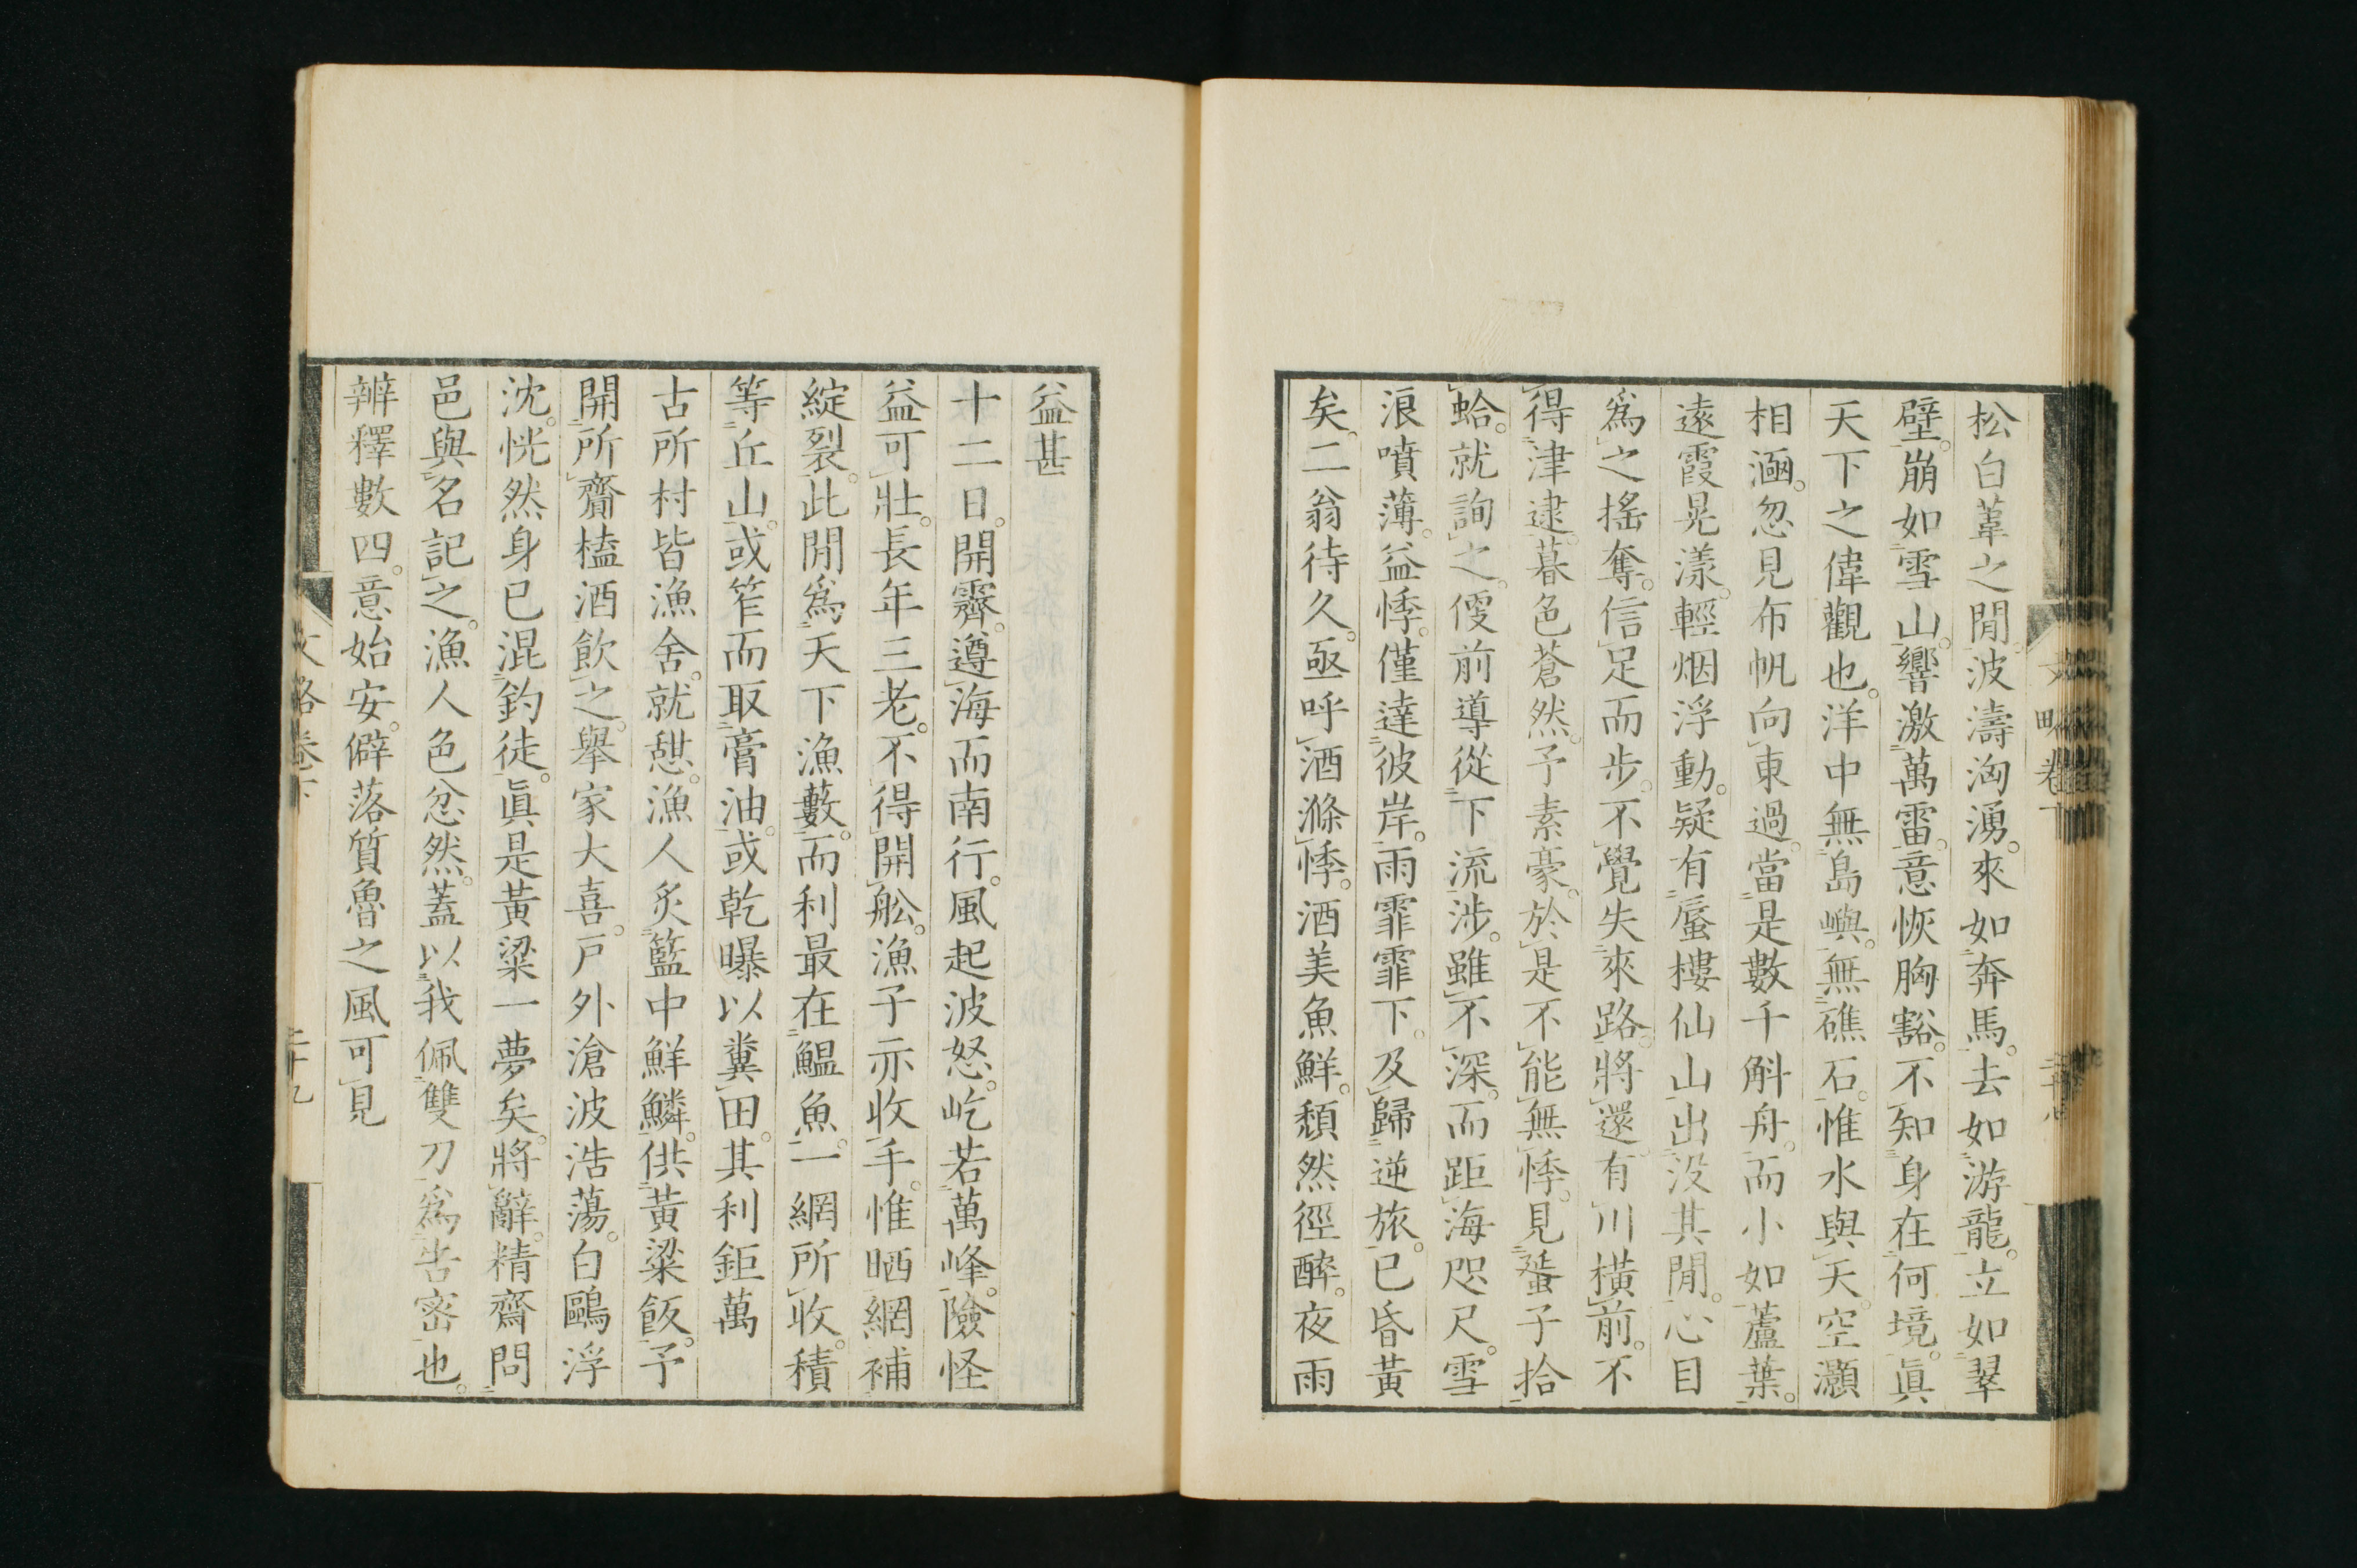 松白葦之閒。波濤洶湧。來如奔馬。去如游龍。立如翠
壁。崩如雪山。響激萬雷。意恢胸豁。不知身在何境。眞
天下之偉觀也。洋中無島嶼。無礁石。惟水與天。空灝
相涵。忽見布帆向東過。當是數千斛舟。而小如蘆葉。
遠霞晃漾。輕烟浮動。疑有蜃樓仙山出沒其閒。心目
爲之搖奪。信足而步。不覺失來路。將還有川橫前。不
得津逮。暮色蒼然。予素豪。於是不能無悸。見蜑子拾
蛤。就詢之。便前導從下流涉。雖不深。而距海咫尺。雪
浪噴薄。益悸。僅達彼岸。雨霏霏下。及歸逆旅。已昏黃
矣。二翁待久。亟呼酒滌悸。酒美魚鮮。頹然徑醉。夜雨
益甚
十二日。開霽。遵海而南行。風起波怒。屹若萬峰。險怪
益可壯。長年三老。不得開舩。漁子亦收手。惟晒網補
綻裂。此閒爲天下漁藪。而利最在鰛魚。一網所收。積
等丘山。或笮而取膏油。或乾曝以糞田。其利鉅萬
古所村皆漁舍。就憩。漁人炙籃中鮮鱗。供黃粱飯。予
開所齎榼酒飮之。舉家大喜。戶外滄波浩蕩。白鷗浮
沈。恍然身已混釣徒。眞是黃粱一夢矣。將辭。精齋問
邑與名記之。漁人色忿然。蓋以我佩雙刀爲告密也。
辨釋數四。意始安。僻落質魯之風可見
文略卷下
二十九